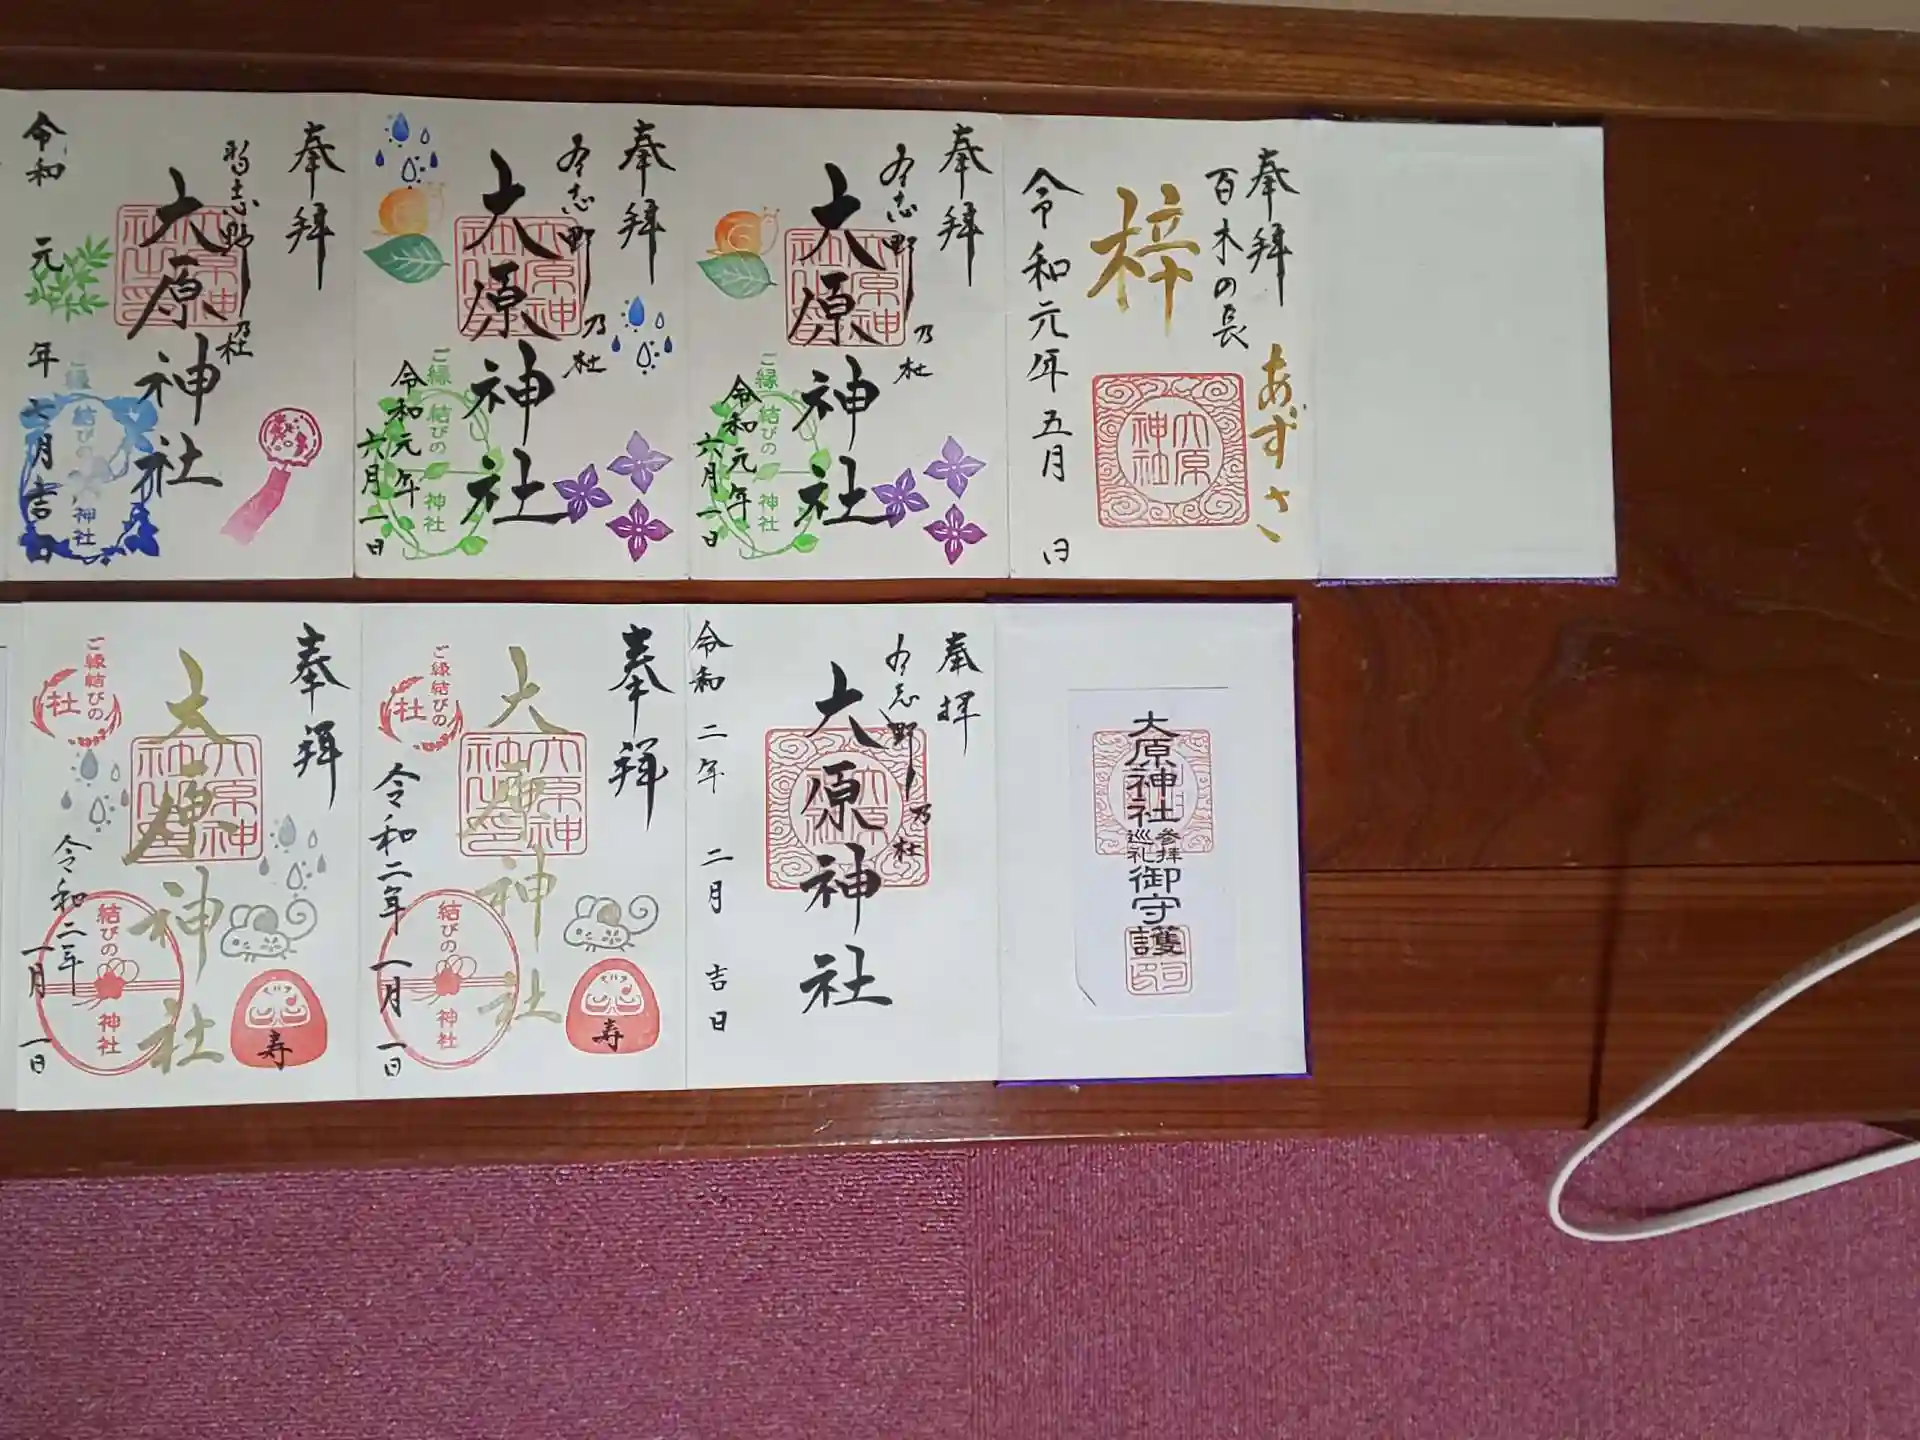 奉拝
百木の長
梓
あずさ
大原神社
令和元年五月 日
奉拝
大原神社
乃杜
令和元年
六月一日
ご縁
結びの
神社
奉拝
大原神社
乃杜
令和元年
六月一日
ご縁
結びの
神社
奉拝
習志野乃杜
大原神社
令和元年七月吉日
ご縁
結びの
神社
大原神社
参拝
巡礼
御守護
奉拝
乃杜
大原神社
令和二年二月吉日
奉拝
大原神社
ご縁結びの
杜
令和二年一月一日
結びの
神社
寿
奉拝
大原神社
ご縁結びの
杜
令和二年
一月一日
結びの
神社
寿